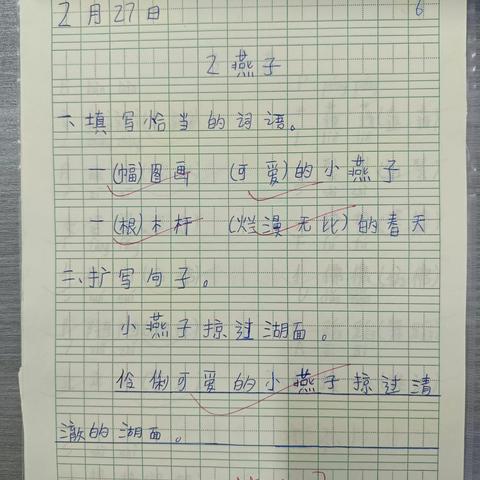 2月27日 6
2 燕子
一、填写恰当的词语。
一(幅)图画 (可爱)的小燕子
一(根)木杆 (烂漫无比)的春天
二、扩写句子。
小燕子掠过湖面。
伶俐可爱的小燕子掠过清
澈的湖面。